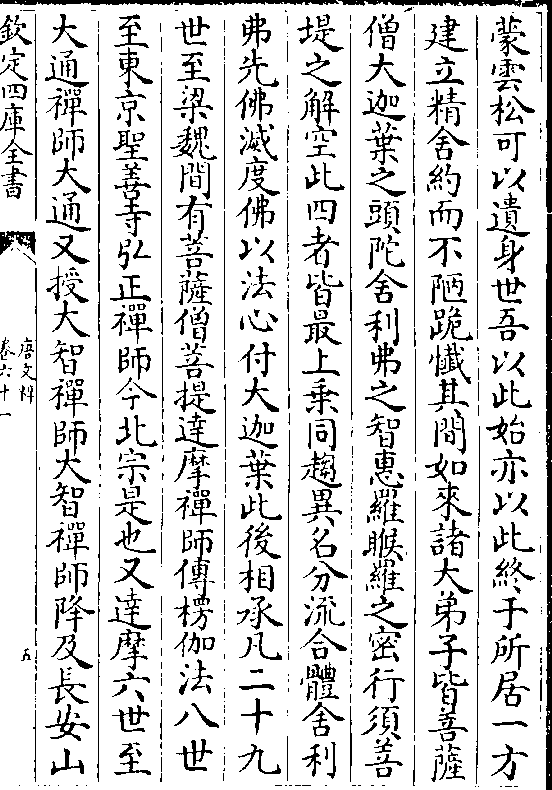 蒙雲松可以遺身世吾以此始亦以此終于所居一方
建立精舍約而不陋跪懴其間如來諸大弟子皆菩薩
僧大迦葉之頭陀舍利弗之智惠羅睺羅之密行須菩
堤之解空此四者皆最上乗同趨異名分流合體舍利
弗先佛滅度佛以法心付大迦葉此後相承凡二十九
世至梁魏間有菩薩僧菩提達摩禪師傳楞伽法八世
至東京聖善寺弘正禪師今北宗是也又達摩六世至
大通禪師大通又授大智禪師大智禪師降及長安山
欽定四庫全書
唐文粹
卷六十一
五